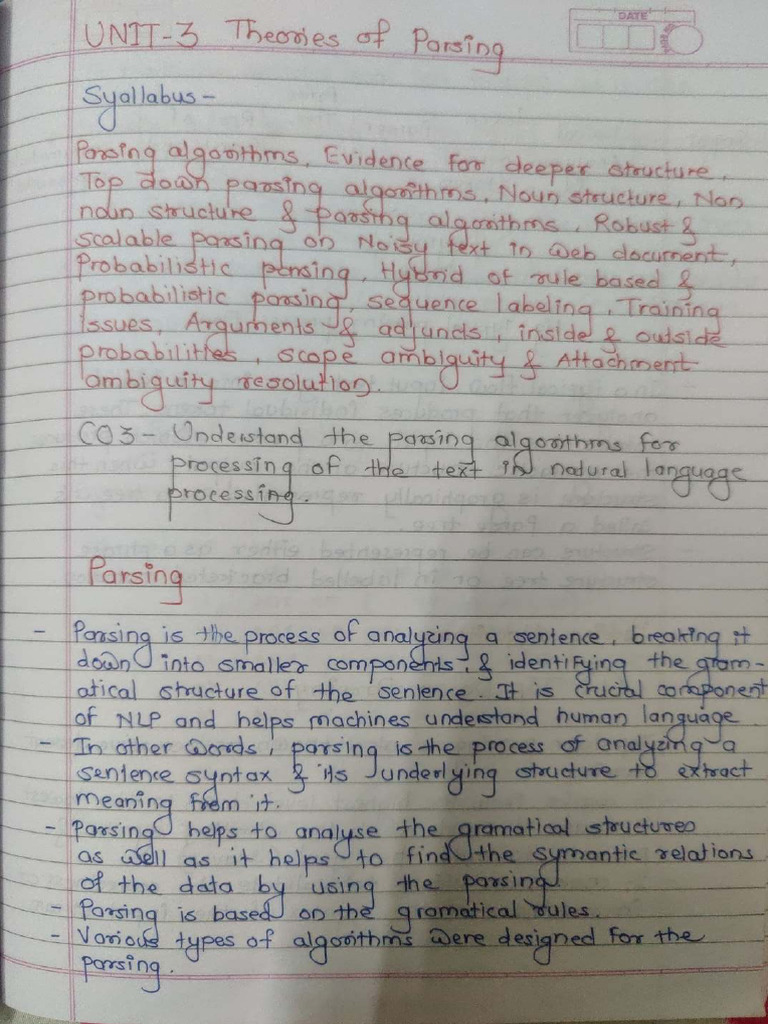 DATE
UNIT-3 Theories of Parsing
Syallabus-
Parsing algorithms, Evidence for deeper structure,
Top down parsing algorithms, Noun structure, Non
noun structure & parsing algorithms, Robust &
scalable parsing on Noisy text in Web document,
Probabilistic parsing, Hybrid of rule based &
probabilistic parsing, sequence labeling, Training
issues, Arguments & adjuncts, inside & outside
probabilities, scope ambiguity & Attachment
ambiguity resolution.
CO3- Understand the parsing algorithms for
processing of the text in natural language
processing.
Parsing
- Parsing is the process of analyzing a sentence, breaking it
down into smaller components, & identifying the gram-
atical structure of the sentence. It is crucial component
of NLP and helps machines understand human language
- In other words, parsing is the process of analyzing a
sentence syntax & its underlying structure to extract
meaning from it.
- Parsing helps to analyse the gramatical structures
as well as it helps to find the symantic relations
of the data by using the parsing.
- Parsing is based on the gramatical rules.
- Various types of algorithms were designed for the
parsing.